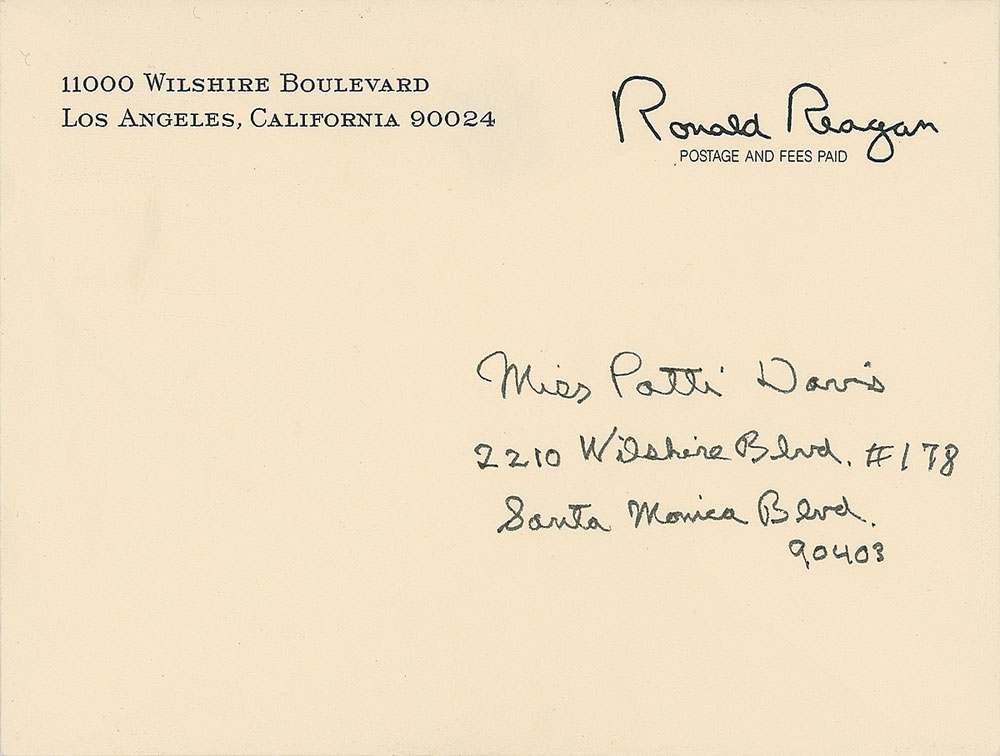 11000 Wilshire Boulevard
Los Angeles, California 90024
Ronald Reagan
POSTAGE AND FEES PAID
Miss Patti Davis
2210 Wilshire Blvd. #178
Santa Monica Blvd.
90403